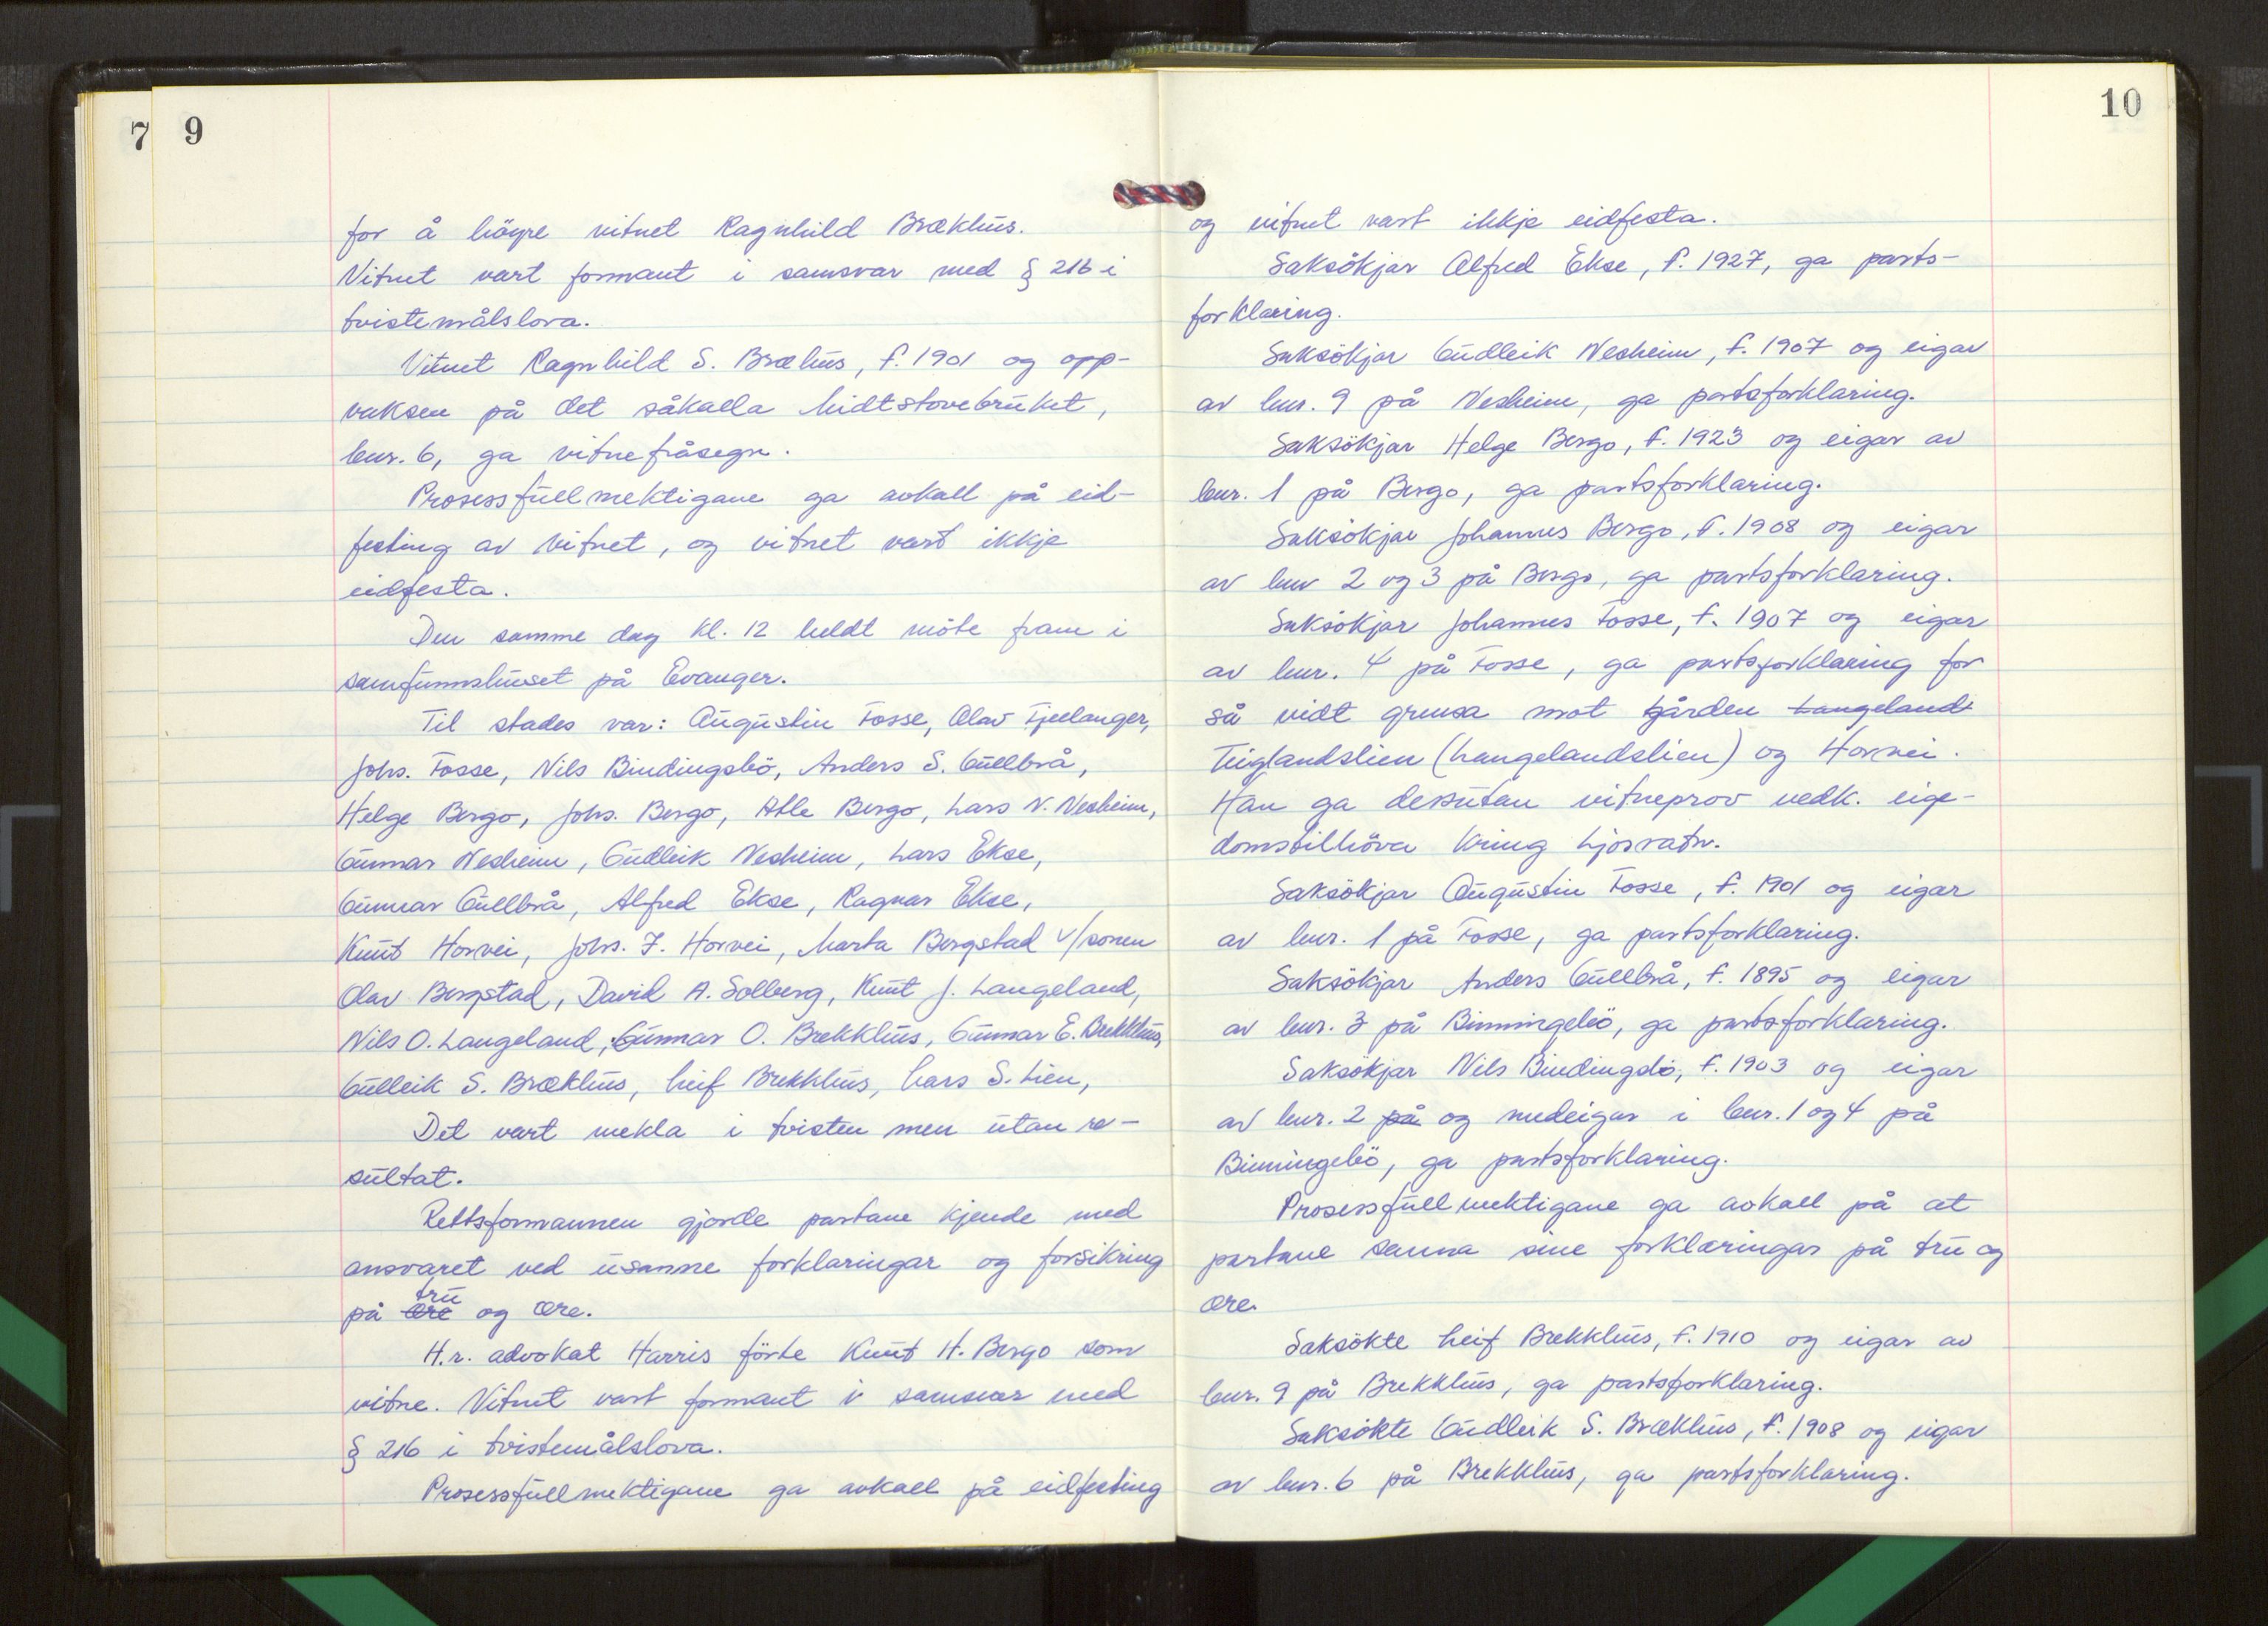 7 9
for å höyre vitnet Ragnhild Bræklus.
Vitnet vart formant i samsvar med § 216 i
tvistemålslova.
Vitnet Ragnhild S. Brælus, f. 1901 og opp-
vaksen på det såkalla Midtstovebruket,
bnr. 6, ga vitnefråsegn.
Prosessfullmektigane ga avkall på eid-
festing av vitnet, og vitnet vart ikkje
eidfesta.
Den samme dag kl. 12 heldt möte fram i
samfunnshuset på Evanger.
Til stades var: Augustin Fosse, Olav Fjellanger,
Johs. Fosse, Nils Bindingsbö, Anders S. Gullbrå,
Helge Bergo, Johs. Bergo, Atle Bergo, Lars N. Nesheim,
Gunnar Nesheim, Gudleik Nesheim, Lars Ekse,
Gunnar Gullbrå, Alfred Ekse, Ragnar Ekse,
Knut Horvei, Johs. J. Horvei, Marta Bergstad v/sonen
Olav Bergstad, David A. Solberg, Knut J. Langeland,
Nils O. Langeland, Gunnar O. Brekkhus, Gunnar E. Brekkhus,
Gulleik S. Bræklus, Leif Brekkhus, Lars S. Lien,
Det vart mekla i tvisten men utan re-
sultat.
Rettsformannen gjorde partane kjende med
ansvaret ved usanne forklaringar og forsikring
på ære tru og ære.
H.r. advokat Harris förte Knut H. Bergo som
vitne. Vitnet vart formant i samsvar med
§ 216 i tvistemålslova.
Prosessfullmektigane ga avkall på eidfesting
10
og vitnet vart ikkje eidfesta.
Saksökjar Alfred Ekse, f. 1927, ga parts-
forklaring.
Saksökjar Gudleik Nesheim, f. 1907 og eigar
av bnr. 9 på Nesheim, ga partsforklaring.
Saksökjar Helge Bergo, f. 1923 og eigar av
bnr. 1 på Bergo, ga partsforklaring.
Saksökjar Johannes Bergo, f. 1908 og eigar
av bnr 2 og 3 på Bergo, ga partsforklaring.
Saksökjar Johannes Fosse, f. 1907 og eigar
av bnr. 4 på Fosse, ga partsforklaring for
så vidt grensa mot gården Langeland
Tuglandslien (Langelandslien) og Horvei.
Han ga dessutan vitneprov vedk. eige-
domstilhöva kring Ljosvatn.
Saksökjar Augustin Fosse, f. 1901 og eigar
av bnr. 1 på Fosse, ga partsforklaring.
Saksökjar Anders Gullbrå, f. 1895 og eigar
av bnr. 3 på Binningebö, ga partsforklaring.
Saksökjar Nils Bindingsbö, f. 1903 og eigar
av bnr. 2 på og medeigar i bnr. 1 og 4 på
Binningebö, ga partsforklaring.
Prosessfullmektigane ga avkall på at
partane sanna sine forklaringar på tru og
ære.
Saksökte Leif Brekkhus, f. 1910 og eigar av
bnr. 9 på Brekkhus, ga partsforklaring.
Saksökte Gudleik S. Bræklus, f. 1908 og eigar
av bnr. 6 på Brekkhus, ga partsforklaring.